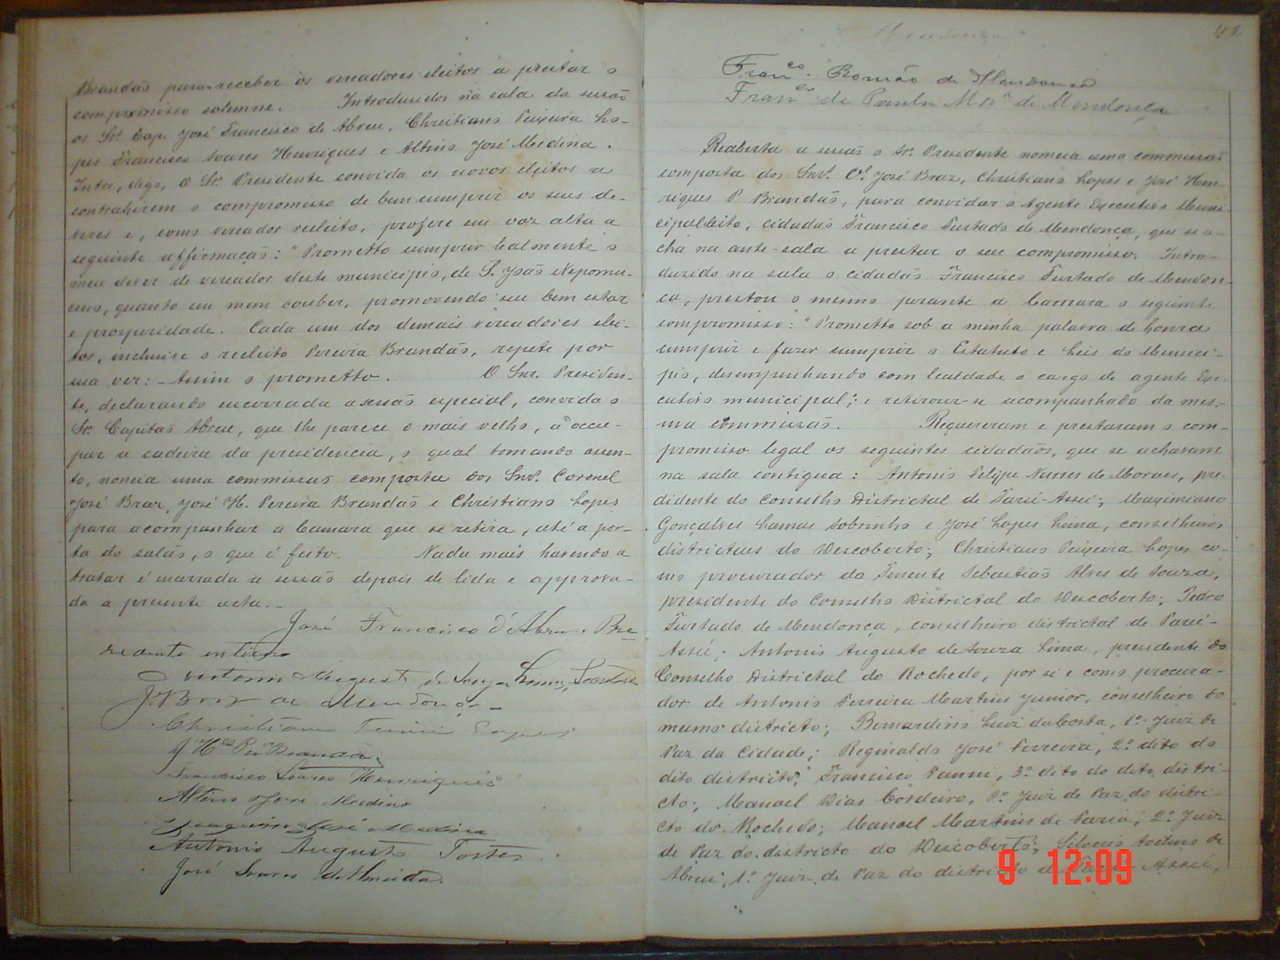 Brandão para receber os vereadores eleitos a prestar o
compromisso solemne. Introduzidos na sala da sessão
os Srs. Cap. José Francisco de Abreu, Christiano Teixeira Lo-
pes Francisco Soares Henriques e Altino José Medina.
Intro, digo, O Sr. Presidente convida os novos eleitos a
contrahirem o compromisso de bem cumprir os seus de-
veres e, como vereador reeleito, profere em voz alta a
seguinte affirmação: "Prometto cumprir lealmente o
meu dever de vereador deste municipio, de S. João Nepomu-
ceno, quanto em mim couber, promovendo seu bem estar
e prosperidade. Cada um dos demais vereadores elei-
tos, inclusive o reeleito Pereira Brandão, repete por
sua vez: - Assim o prometto. O Snr. Presiden-
te, declarando encerrada a sessão especial, convida o
Sr. Capitão Abreu, que lhe parece o mais velho, a occu-
par a cadeira da presidencia, o qual tomando assen-
to, nomeia uma commissão composta dos Snrs. Coronel
José Braz, José H. Pereira Brandão e Christiano Lopes
para acompanhar a Camara que se retira, até a por-
ta do salão, o que é feito. Nada mais havendo a
tratar é encerrada a sessão depois de lida e approva-
da a presente acta.
José Francisco d'Abreu. Pre
zidente interino
Antonio Augusto de Souza Lima, Secretario
J. Braz de Mendonça
Christiano Teixeira Lopes
J. H. Per. Brandão
Francisco Soares Henriques
Altino José Medina
Joaquim José Medina
Antonio Augusto Torres
José Soares d'Almeida.
Mendonça
Franco. Romão de Mendonça
Franco. de Paula Mora. de Mendonça
Reaberta a sessão o Sr. Presidente nomeia uma commissão
composta dos Snrs. Cel. José Braz, Christiano Lopes e José Hen-
riques P. Brandão, para convidar o Agente Executivo Muni-
cipal eleito, cidadão Francisco Furtado de Mendonça, que se a-
cha na ante-sala a prestar o seu compromisso. Intro-
duzido na sala o cidadão Francisco Furtado de Mendon-
ça, prestou o mesmo perante a Camara o seguinte
compromisso: "Prometto sob a minha palavra de honra
cumprir e fazer cumprir o Estatuto e Leis do Munici-
pio, desempenhando com lealdade o cargo de agente Exe-
cutivo municipal; e retirou-se acompanhado da mes-
ma commissão. Requereram e prestaram o com-
promisso legal os seguintes cidadãos, que se achavam
na sala contigua: Antonio Felippe Nunes de Moraes, pre-
sidente do Conselho Districtal de Taru-Assú; Maximiano
Gonçalves Lamas Sobrinho e José Lopes Lima, conselheiros
districtaes do Descoberto; Christiano Teixeira Lopes co-
mo procurador do Tenente Sebastião Alves de Souza,
presidente do Conselho Districtal do Descoberto; Pedro
Furtado de Mendonça, conselheiro districtal de Taru-
Assú; Antonio Augusto de Souza Lima, presidente do
Conselho Districtal do Rochedo, por si e como procura-
dor de Antonio Ferreira Martins Junior, conselheiro do
mesmo districto; Bernardino Luiz da Costa, 1º Juiz de
Paz da Cidade; Reginaldo José Ferreira, 2º dito do
dito districto; Francisco Vanni, 3º dito do dito distri-
cto; Manoel Dias Cordeiro, Juiz de Paz do distri-
cto do Rochedo; Manoel Martins de Faria; 2º Juiz
de Paz do districto do Descoberto; Silverio Avelino de
Abreu, 1º Juiz de Paz do districto de Assú,
9 12:09